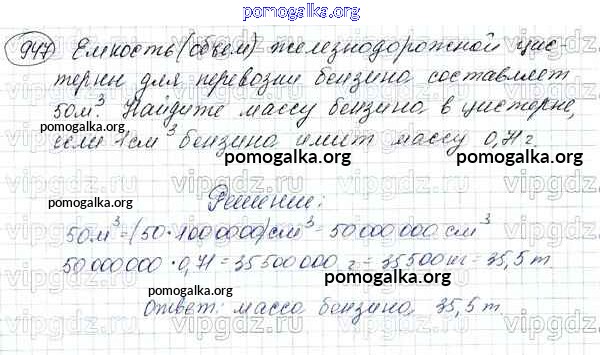 pomogalka.org
947 Емкость (объем) железнодорожной цис-
терны для перевозки бензина составляет
50м³. Найдите массу бензина в цистерне,
pomogalka.org
если 1см³ бензина имеет массу 0,71г.
pomogalka.org pomogalka.org
Решение:
pomogalka.org
50м³=(50·1000000)см³=50000000см³
50000000·0,71=35500000г=35500кг=35,5т.
pomogalka.org
Ответ: масса бензина 35,5т.
vipgdz.ru